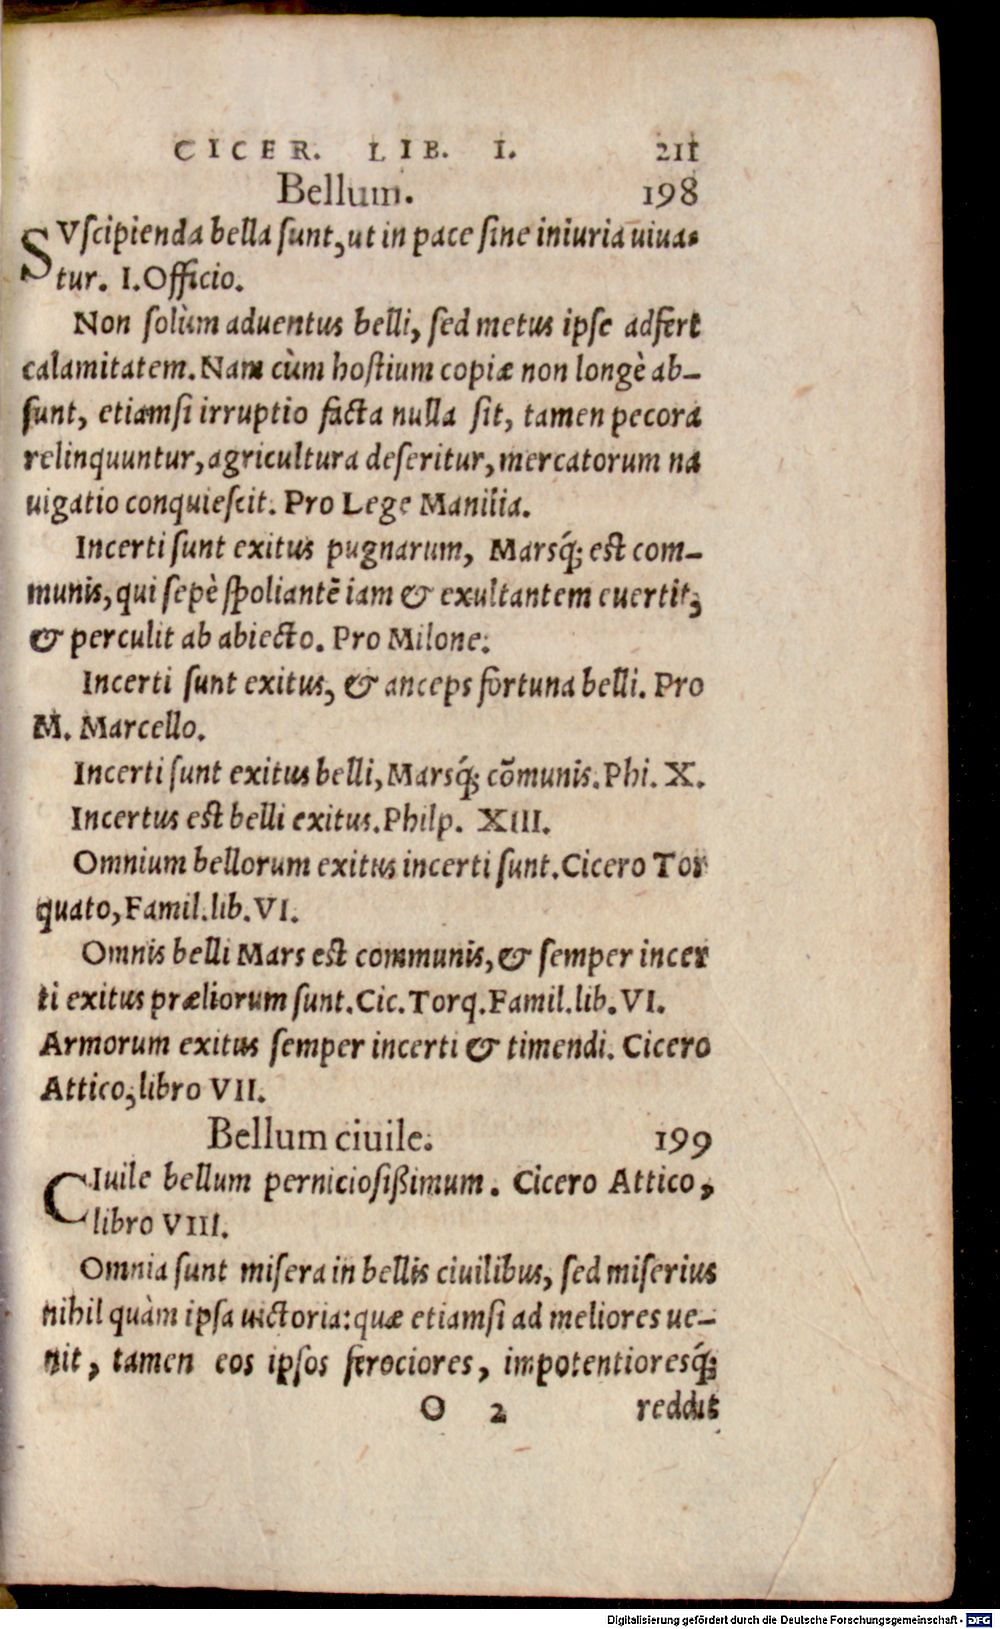 CICER. LIB. I. 211
Bellum. 198
SVſcipienda bella ſunt, ut in pace ſine iniuria uiua-
tur. I. Officio.
Non ſolùm aduentus belli, ſed metus ipſe adfert
calamitatem. Nam cùm hoſtium copiæ non longè ab-
ſunt, etiamſi irruptio facta nulla ſit, tamen pecora
relinquuntur, agricultura deſeritur, mercatorum na
uigatio conquieſcit. Pro Lege Manilia.
Incerti ſunt exitus pugnarum, Marsq́; est com-
munis, qui ſepè ſpoliantē iam & exultantem euertit,
& perculit ab abiecto. Pro Milone.
Incerti ſunt exitus, & anceps fortuna belli. Pro
M. Marcello.
Incerti ſunt exitus belli, Marsq́; cōmunis. Phi. X.
Incertus est belli exitus. Philp. XIII.
Omnium bellorum exitus incerti ſunt. Cicero Tor
quato, Famil. lib. VI.
Omnis belli Mars est communis, & ſemper incer
ti exitus præliorum ſunt. Cic. Torq. Famil. lib. VI.
Armorum exitus ſemper incerti & timendi. Cicero
Attico, libro VII.
Bellum ciuile. 199
CIuile bellum pernicioſißimum. Cicero Attico,
libro VIII.
Omnia ſunt miſera in bellis ciuilibus, ſed miſerius
nihil quàm ipſa uictoria: quæ etiamſi ad meliores ue-
nit, tamen eos ipſos ferociores, impotentioresq́;
O 2 reddit
Digitalisierung gefördert durch die Deutsche Forschungsgemeinschaft - DFG